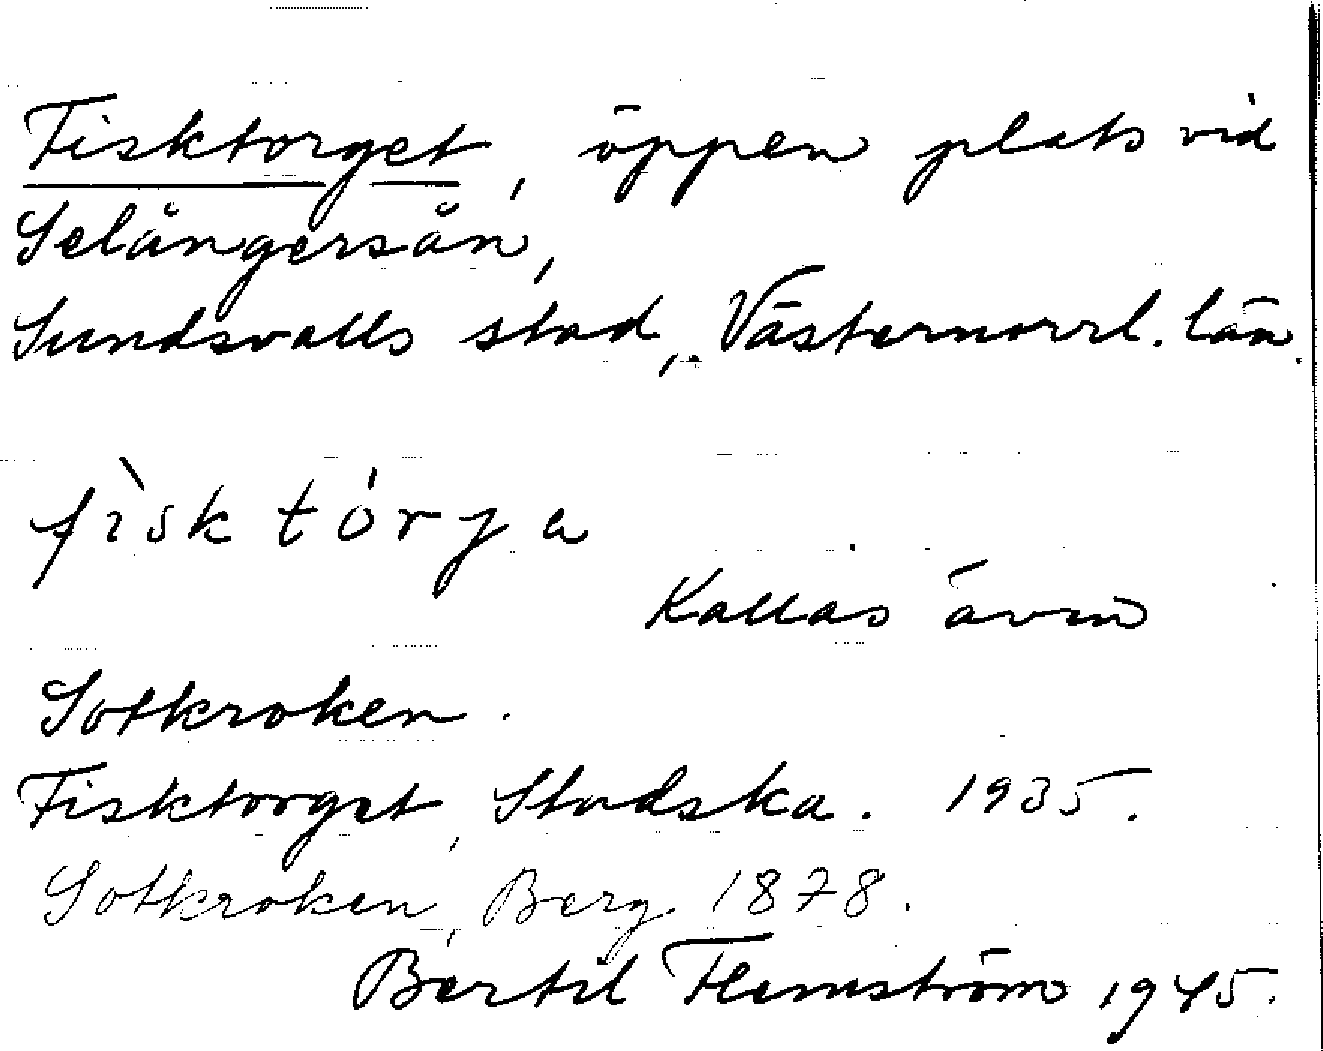 Fisktorget, öppen plats vid
Selångersån,
Sundsvalls stad, Västernorrl. län.
fìsktórja
Kallas även
Sotkroken.
Fisktorget, Stadska. 1935.
Sotkroken, Berg 1878.
Bertil Flemström 1945.